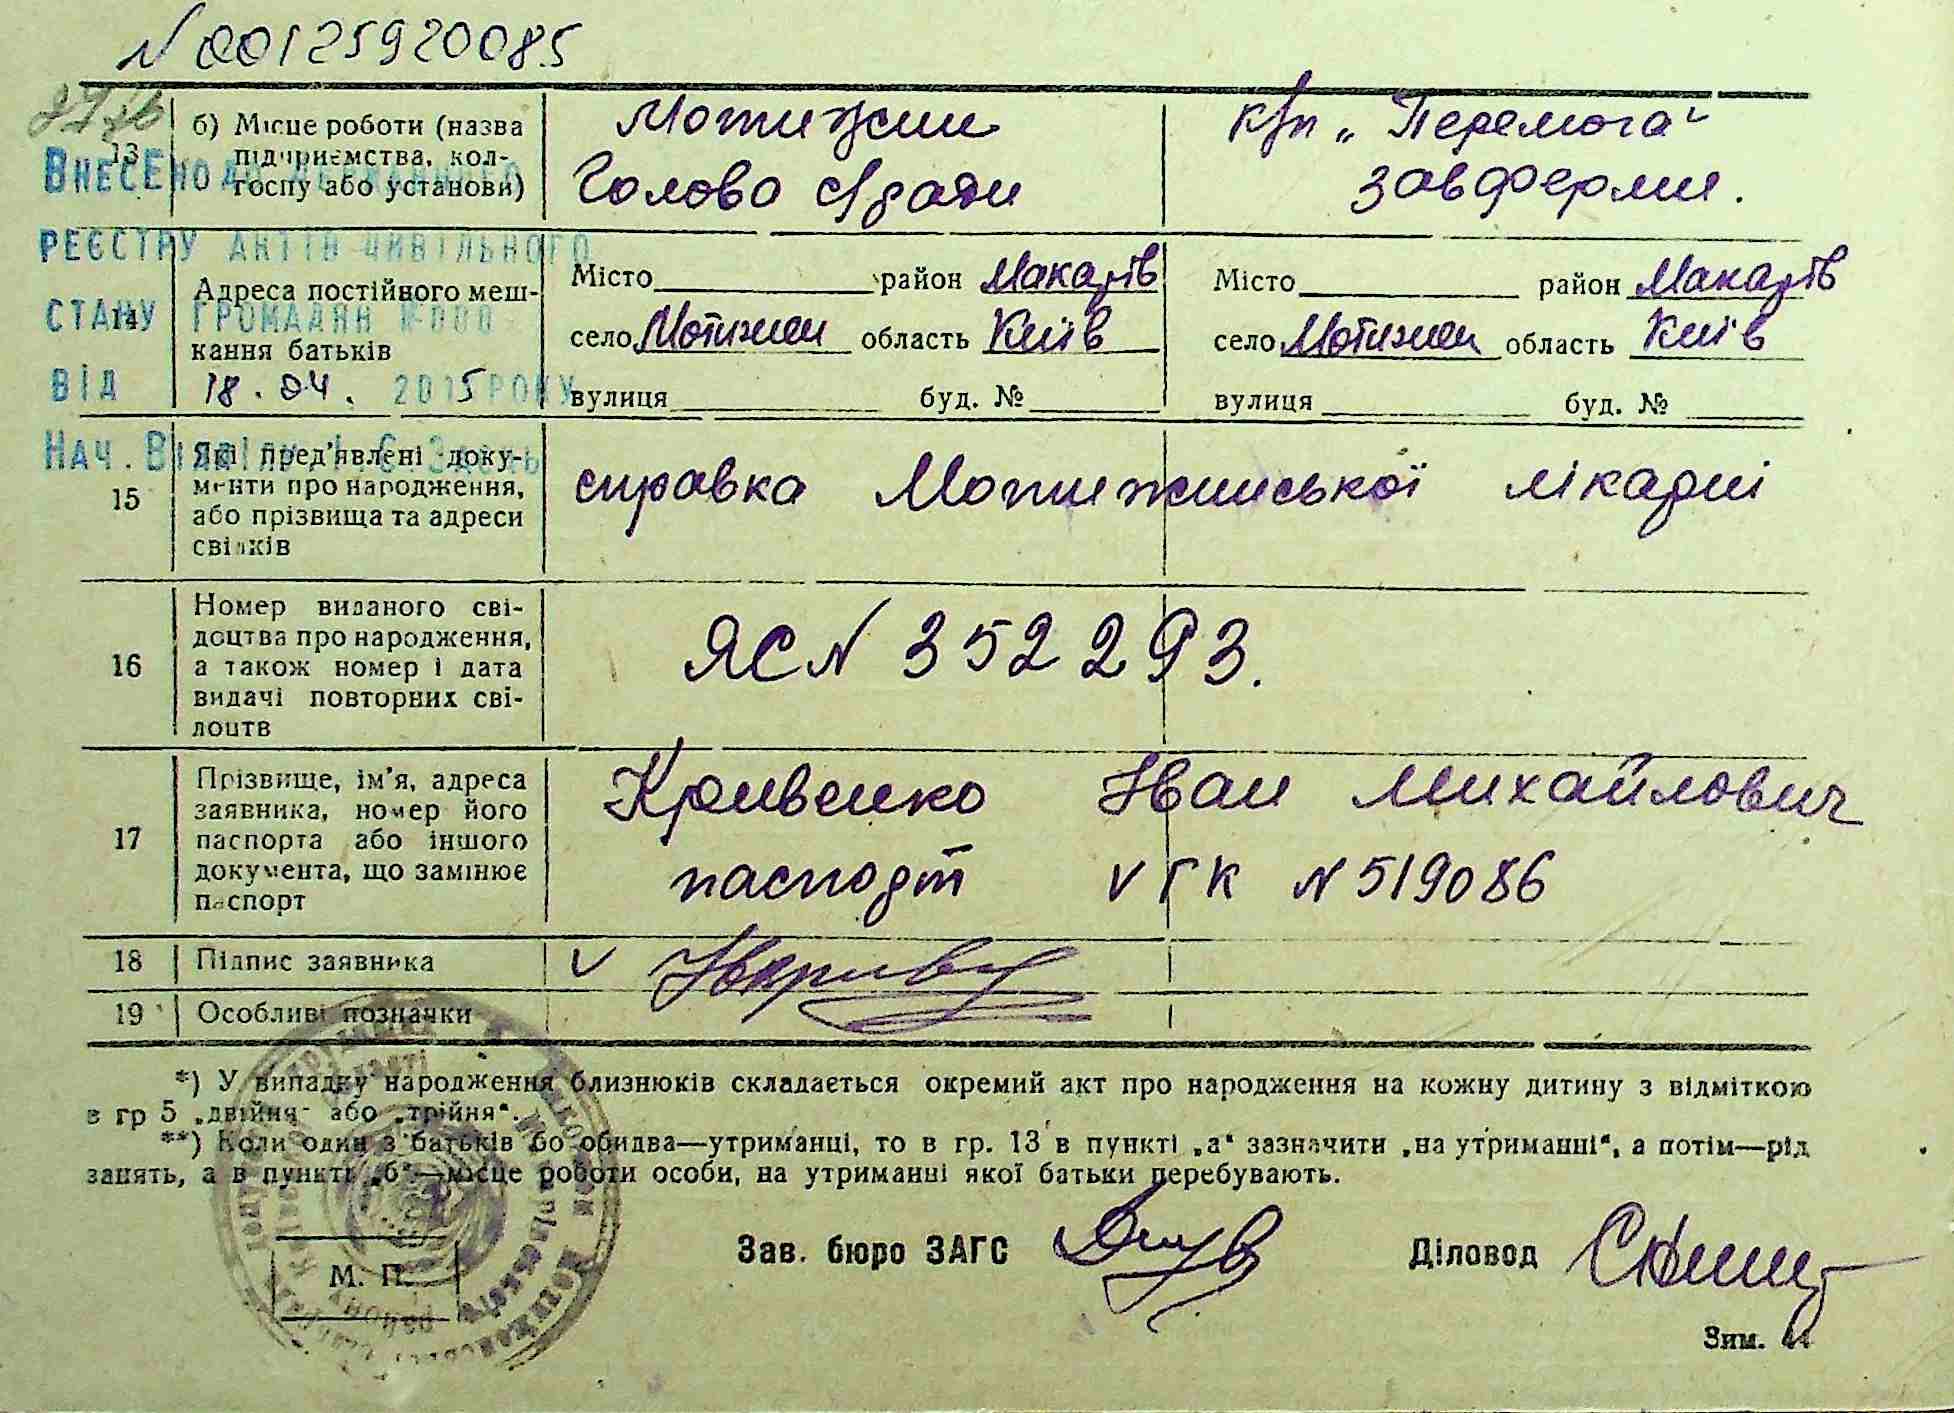 N 00125920085
13
б) Місце роботи (назва підприємства, колгоспу або установи)
Мотижин
Голова с/ради
к/п „Перемога"
завферми.
ВНЕСЕНО ДО ДЕРЖАВНОГО
РЕЄСТРУ АКТІВ ЦИВІЛЬНОГО
СТАНУ ГРОМАДЯН
ВІД 18.04. 2015 РОКУ
НАЧ. ВІДДІЛУ
14
Адреса постійного мешкання батьків
Місто район Макарів
село Мотижин область Київ
вулиця буд. №
Місто район Макарів
село Мотижин область Київ
вулиця буд. №
15
Які пред'явлені документи про народження, або прізвища та адреси свідків
справка Мотижинської лікарні
16
Номер виданого свідоцтва про народження, а також номер і дата видачі повторних свідоцтв
ЯС N 352293.
17
Прізвище, ім'я, адреса заявника, номер його паспорта або іншого документа, що замінює паспорт
Кривенко Іван Михайлович
паспорт V ГК N 519086
18
Підпис заявника
V
19
Особливі позначки
*) У випадку народження близнюків складається окремий акт про народження на кожну дитину з відміткою
в гр 5 „двійня" або „трійня".
**) Коли один з батьків бо обидва—утриманці, то в гр. 13 в пункті „а" зазначити „на утриманні", а потім—рід
занять, а в пункті „б"—місце роботи особи, на утриманні якої батьки перебувають.
М. П.
Зав. бюро ЗАГС
Діловод
Зим.